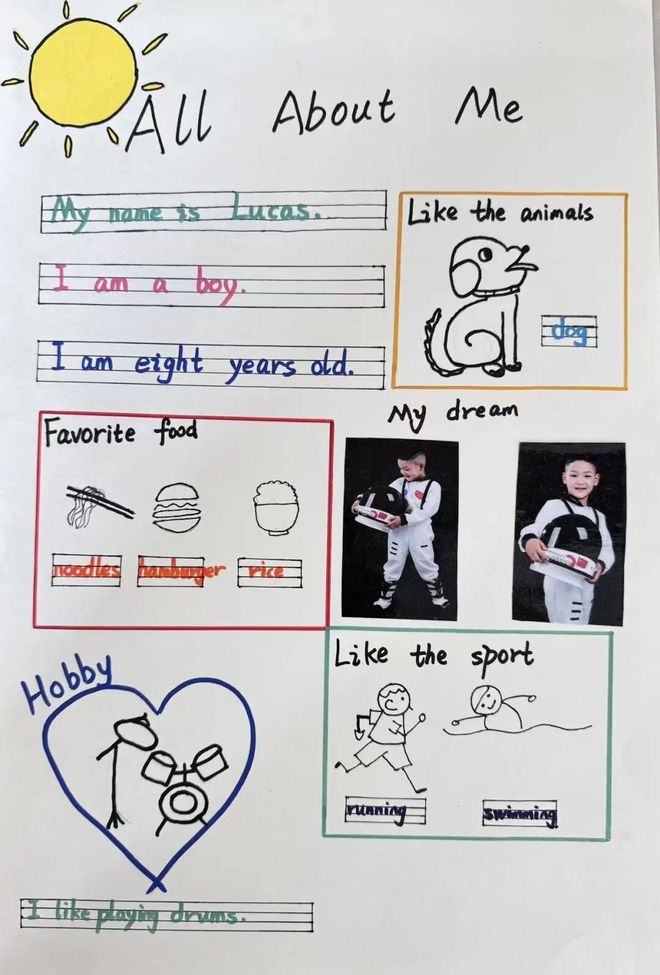 All About Me
My name is Lucas.
I am a boy.
I am eight years old.
Like the animals
dog
Favorite food
noodles hamburger rice
My dream
Like the sport
running swimming
Hobby
I like playing drums.